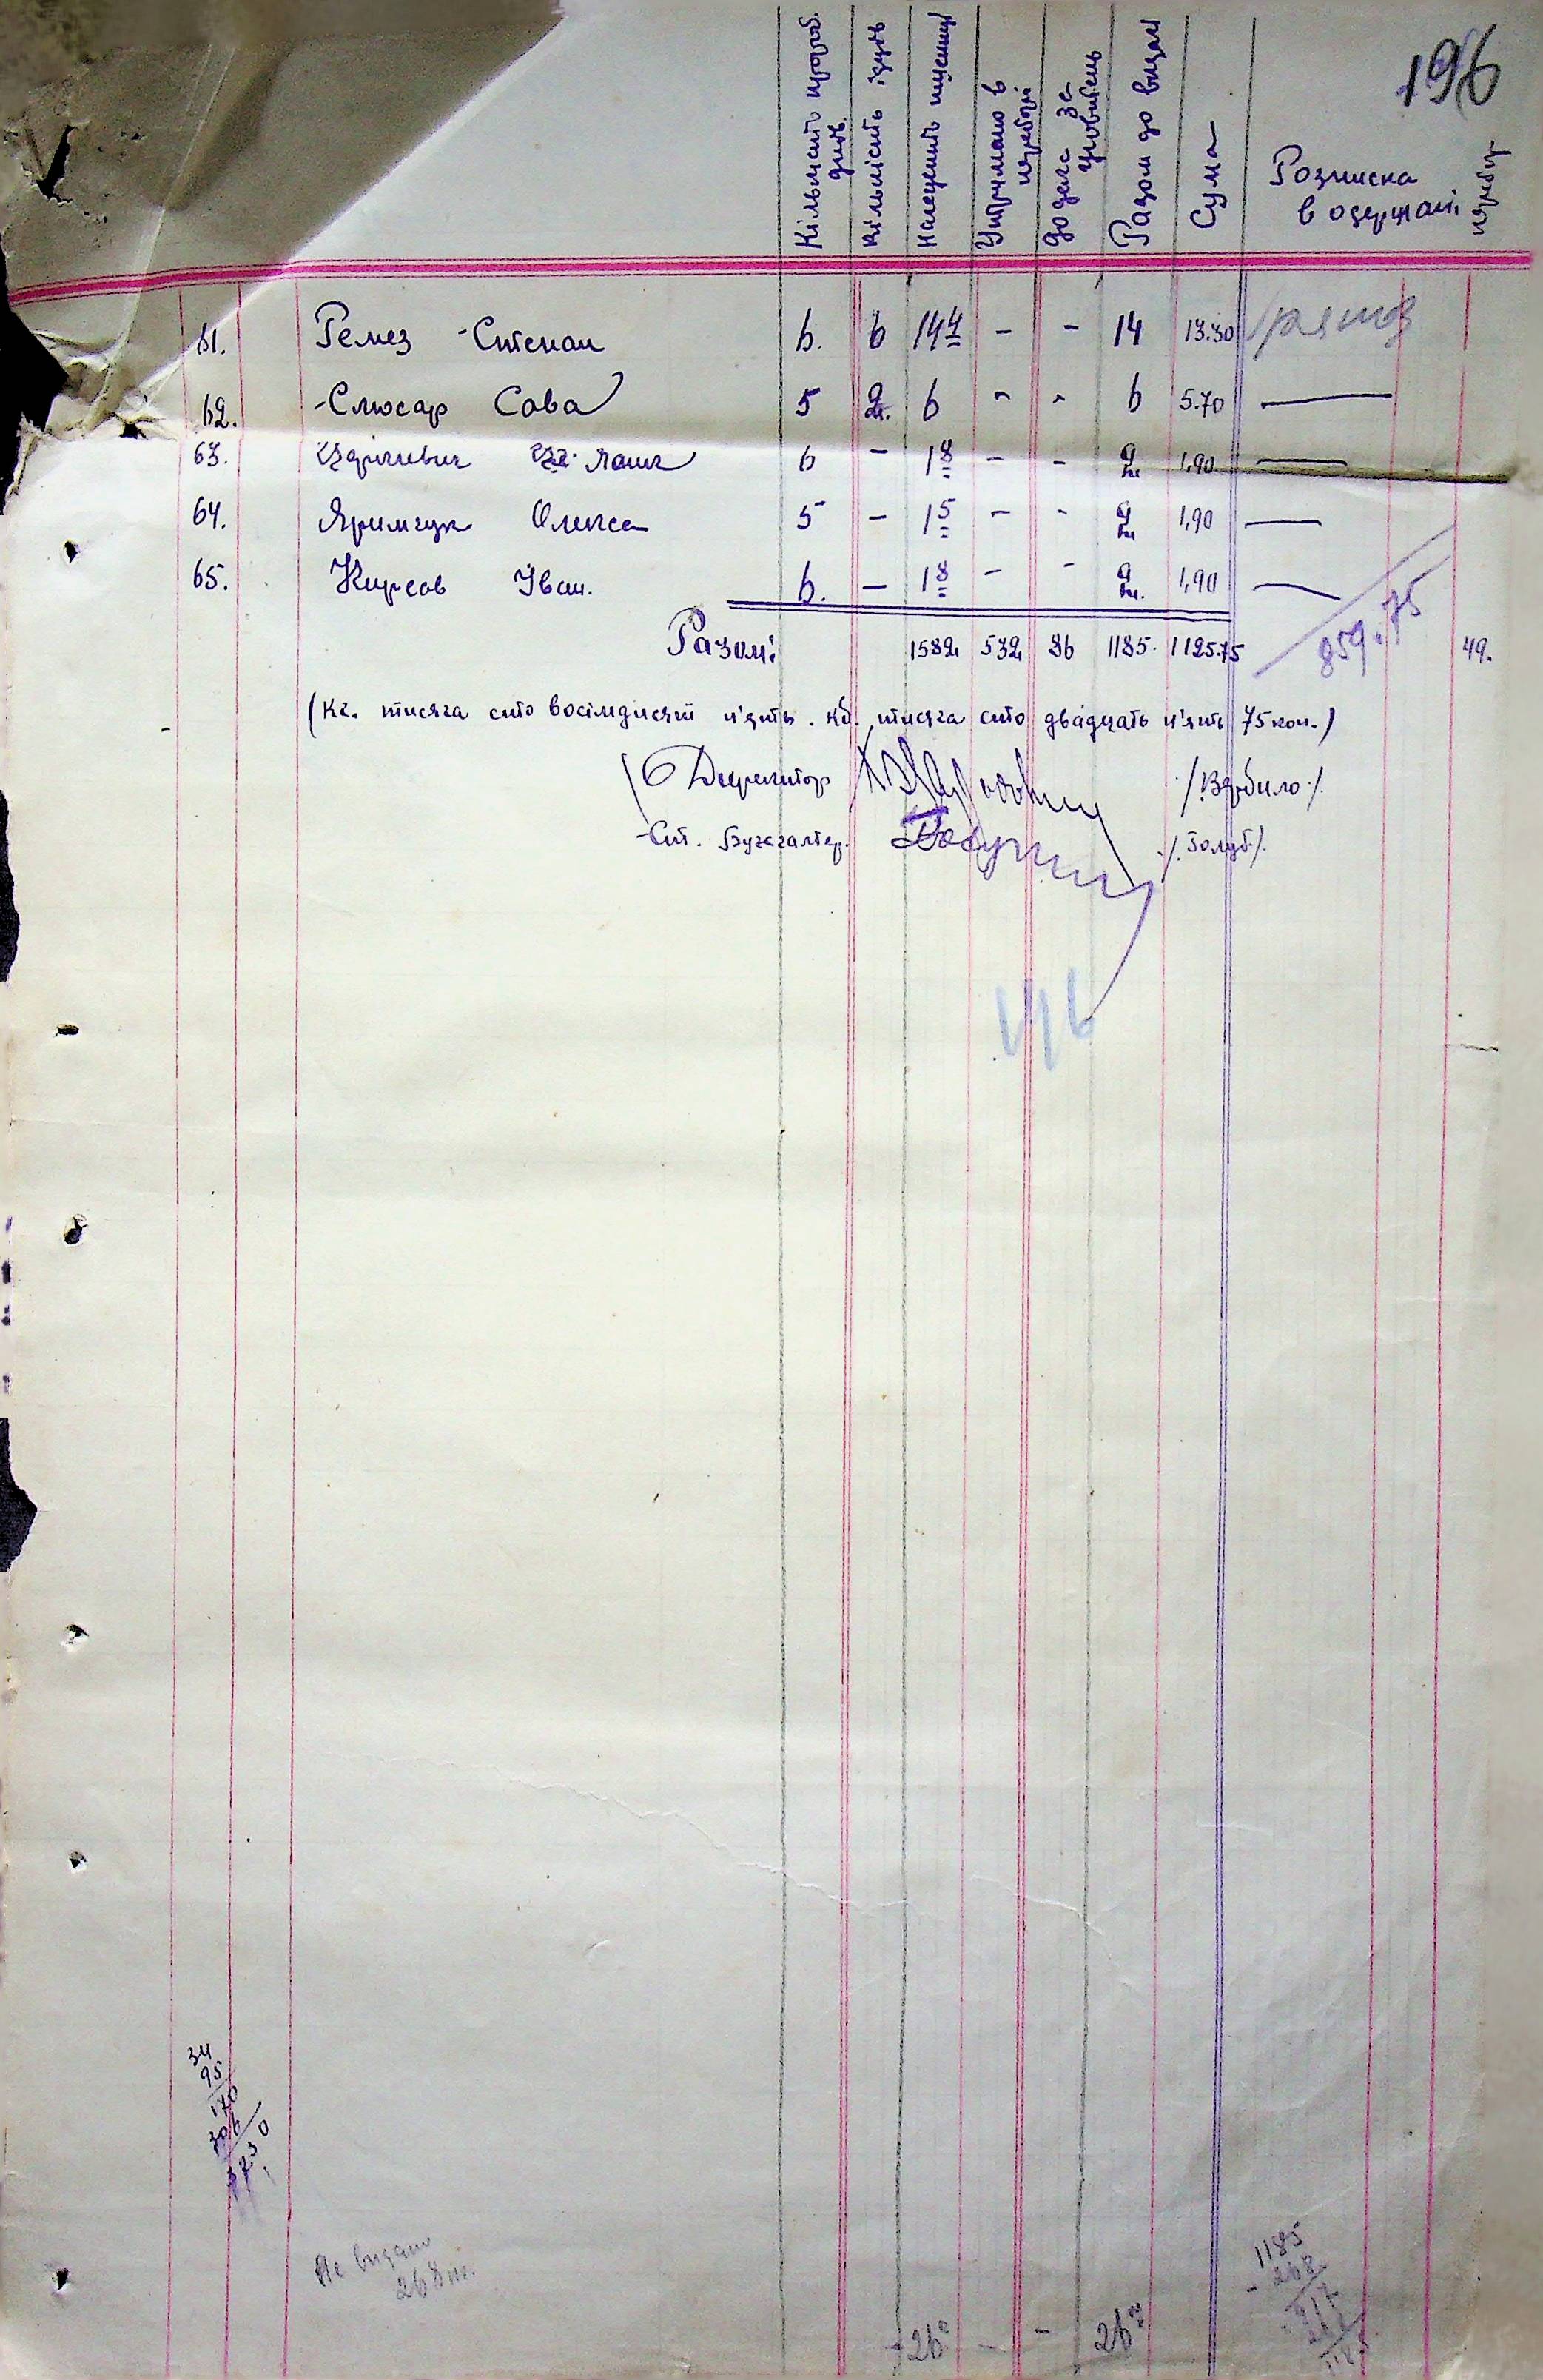 196
Кількість прроб. днів.
Кількість їдців
Належить пшениці
Утримано в
До дачі за
Разом до видачі
Сума
Розписка
в одержані
61. Ремез Степан 6. 6 14 4 - - 14 13.30
62. Слюсар Сава 5 2 6 - - 6 5.70
63. 6 - 1 8 - - 2 кг 1,90 —
64. Яримчук Олекса 5 - 1 5 - - 2 кг 1,90 —
65. Кирсов Іван. 6. - 1 8 - - 2 кг. 1,90 —
Разом: 1582 532 86 1185. 1125.75 859.75 49.
(Кг. тисяча сто восімдисят п'ять. кб. тисяча сто двадцать п'ять 75 коп.)
Директор /Вербило/.
Ст. Бухгалтер. /. Голуб/.
146
34
95
170
306
3230
Не видано
268 кг.
1185
- 268
917
268
1185
26 - - 26